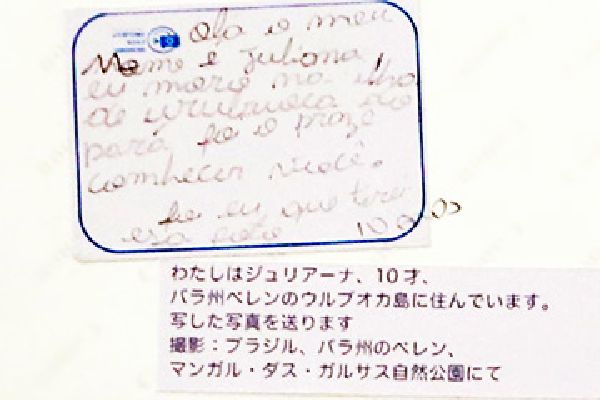 Ola o meu
Nome é Juliana,
eu moro na ilha
de urubuoca rio
para foi o praze
conhecer você.
foi eu que tirei
esa foto 10 anos
わたしはジュリアーナ、10才、
パラ州ベレンのウルブオカ島に住んでいます。
写した写真を送ります
撮影：ブラジル、パラ州のベレン、
マンガル・ダス・ガルサス自然公園にて